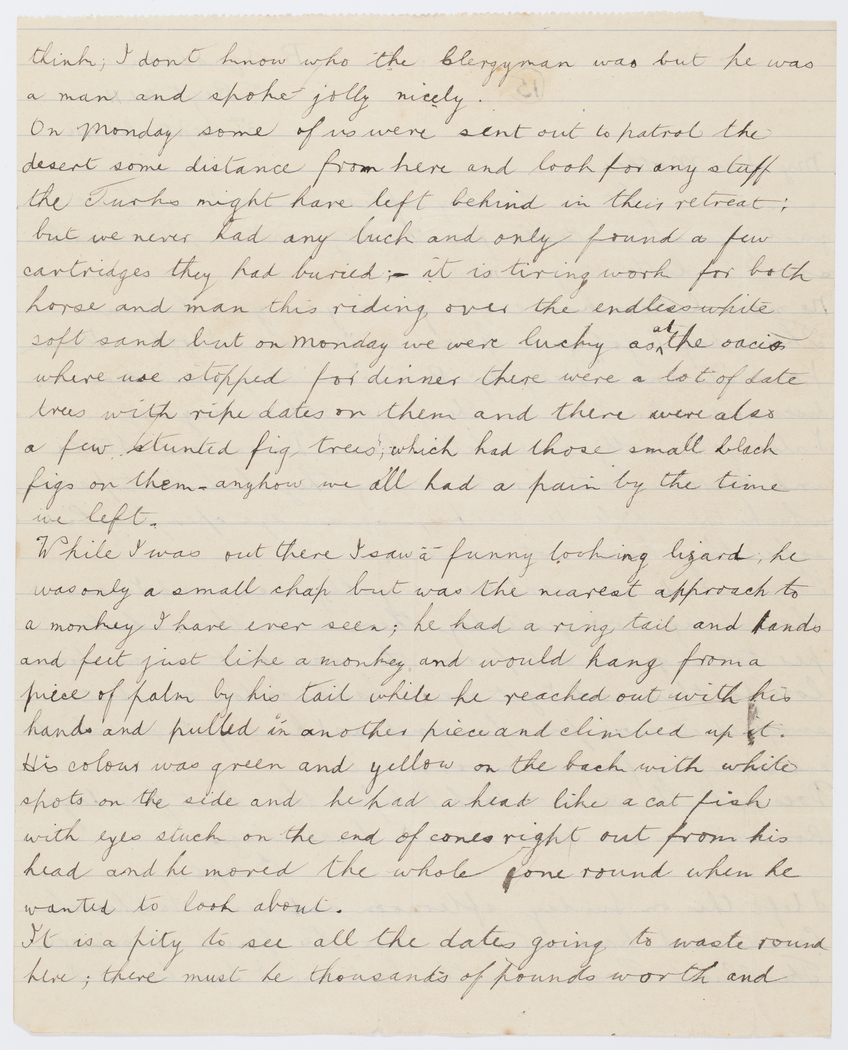 think; I dont know who the Clergyman was but he was
a man and spoke jolly nicely.
On Monday some of us were sent out to patrol the
desert some distance from here and look for any stuff
the Turks might have left behind in their retreat;
but we never had any luck and only found a few
cartridges they had buried; - it is tiring work for both
horse and man this riding over the endless white
soft sand but on Monday we were lucky as at the oacis
where we stopped for dinner there were a lot of date
trees with ripe dates on them and there were also
a few stunted fig trees, which had those small black
figs on them - anyhow we all had a pain by the time
we left.
While I was out there I saw a funny looking lizard, he
was only a small chap but was the nearest approach to
a monkey I have ever seen; he had a ring tail and hands
and feet just like a monkey and would hang from a
piece of palm by his tail while he reached out with his
hands and pulled in another piece and climbed up it.
His colour was green and yellow on the back with white
spots on the side and he had a head like a cat fish
with eyes stuck on the end of cones right out from his
head and he moved the whole cone round when he
wanted to look about.
It is a pity to see all the dates going to waste round
here; there must be thousands of pounds worth and